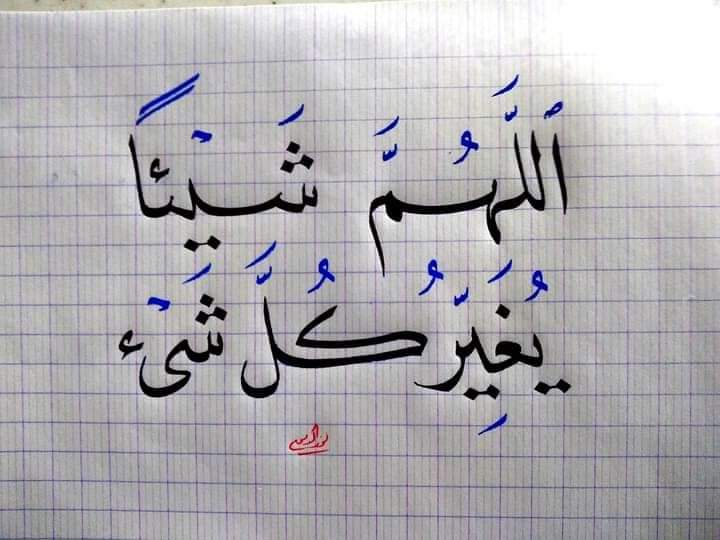 ٱللَّهُمَّ شَيْئاً
يُغَيِّرُ كُلَّ شَىْء